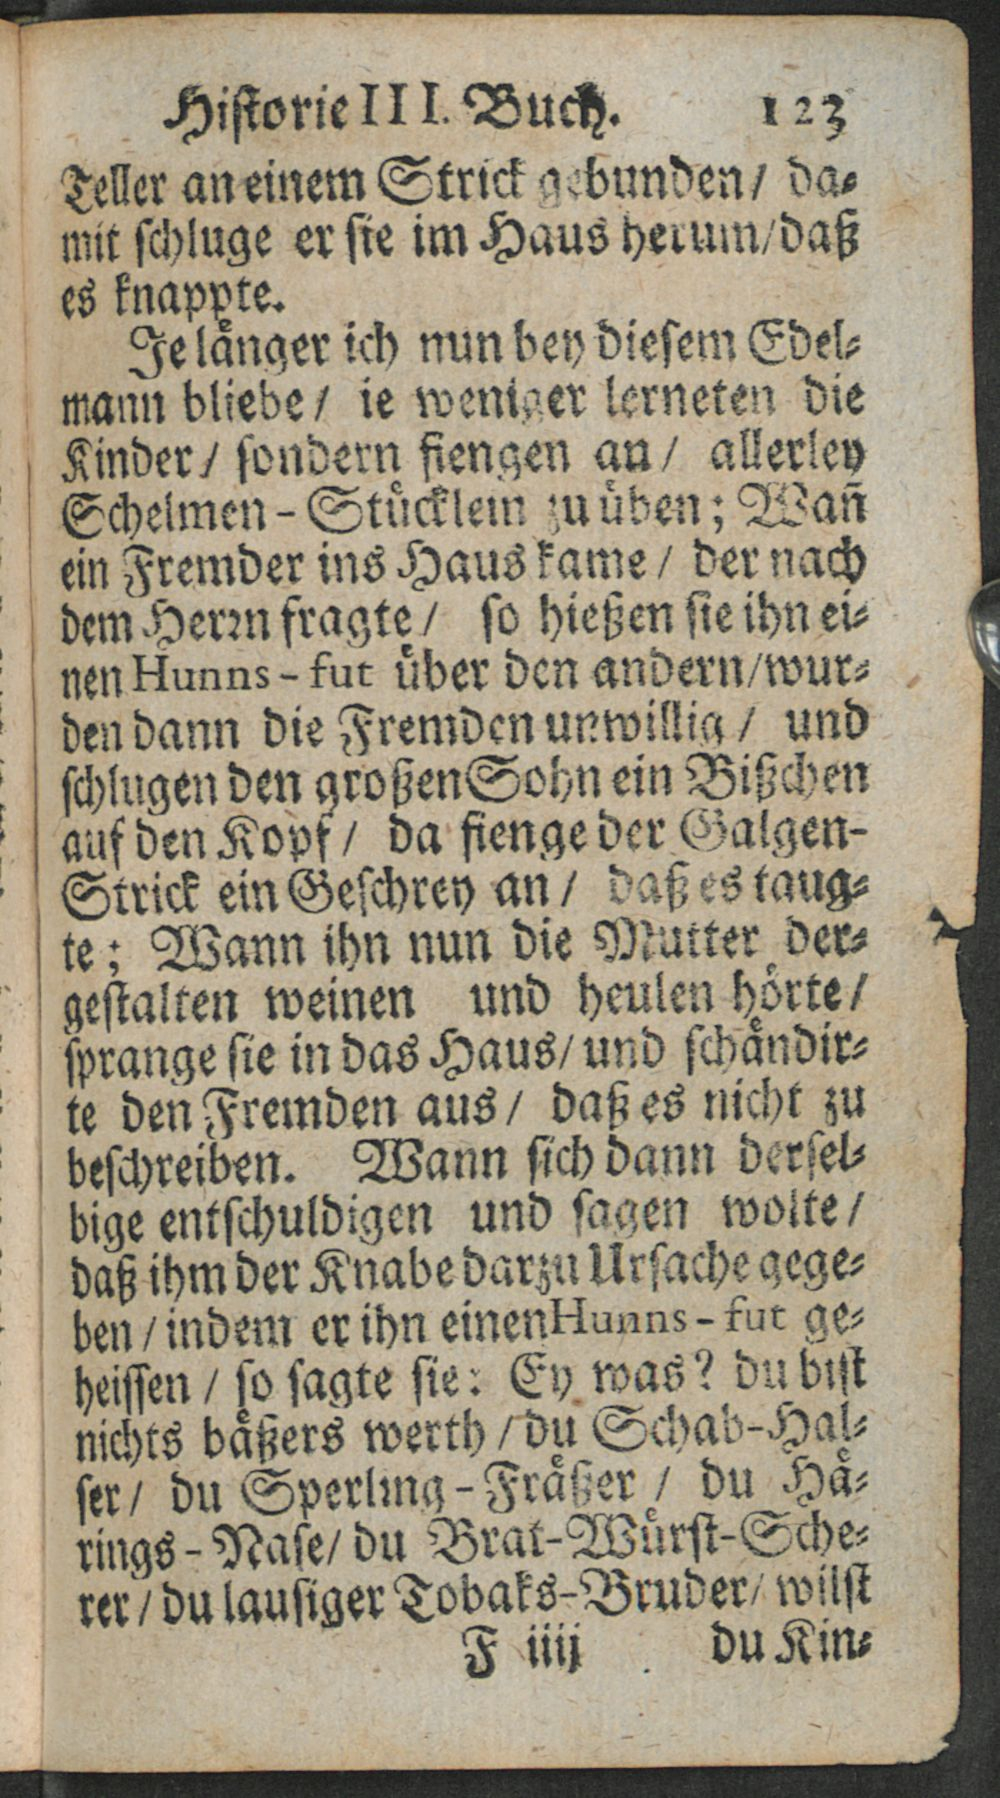 Historie III. Buch. 123
Teller an einem Strick gebunden/ da-
mit schluge er sie im Haus herum/daß
es knappte.
Je länger ich nun bey diesem Edel-
mann bliebe/ ie weniger lerneten die
Kinder/ sondern fiengen an/ allerley
Schelmen-Stücklein zu üben; Wañ
ein Fremder ins Haus kame/ der nach
dem Herrn fragte/ so hießen sie ihn ei-
nen Hunns-fut über den andern/wur-
den dann die Fremden unwillig/ und
schlugen den großen Sohn ein Bißchen
auf den Kopf/ da fienge der Galgen-
Strick ein Geschrey an/ daß es taug-
te; Wann ihn nun die Mutter der-
gestalten weinen und heulen hörte/
sprange sie in das Haus/ und schändir-
te den Fremden aus/ daß es nicht zu
beschreiben. Wann sich dann dersel-
bige entschuldigen und sagen wolte/
daß ihm der Knabe darzu Ursache gege-
ben/ indem er ihn einen Hunns-fut ge-
heissen/ so sagte sie: Ey was? du bist
nichts bäßers werth/ du Schab-Hal-
ser/ du Sperling-Fräßer/ du Hä-
rings-Nase/ du Brat-Würst-Sche-
rer/ du lausiger Tobaks-Bruder/ wilst
F iiij du Kin-